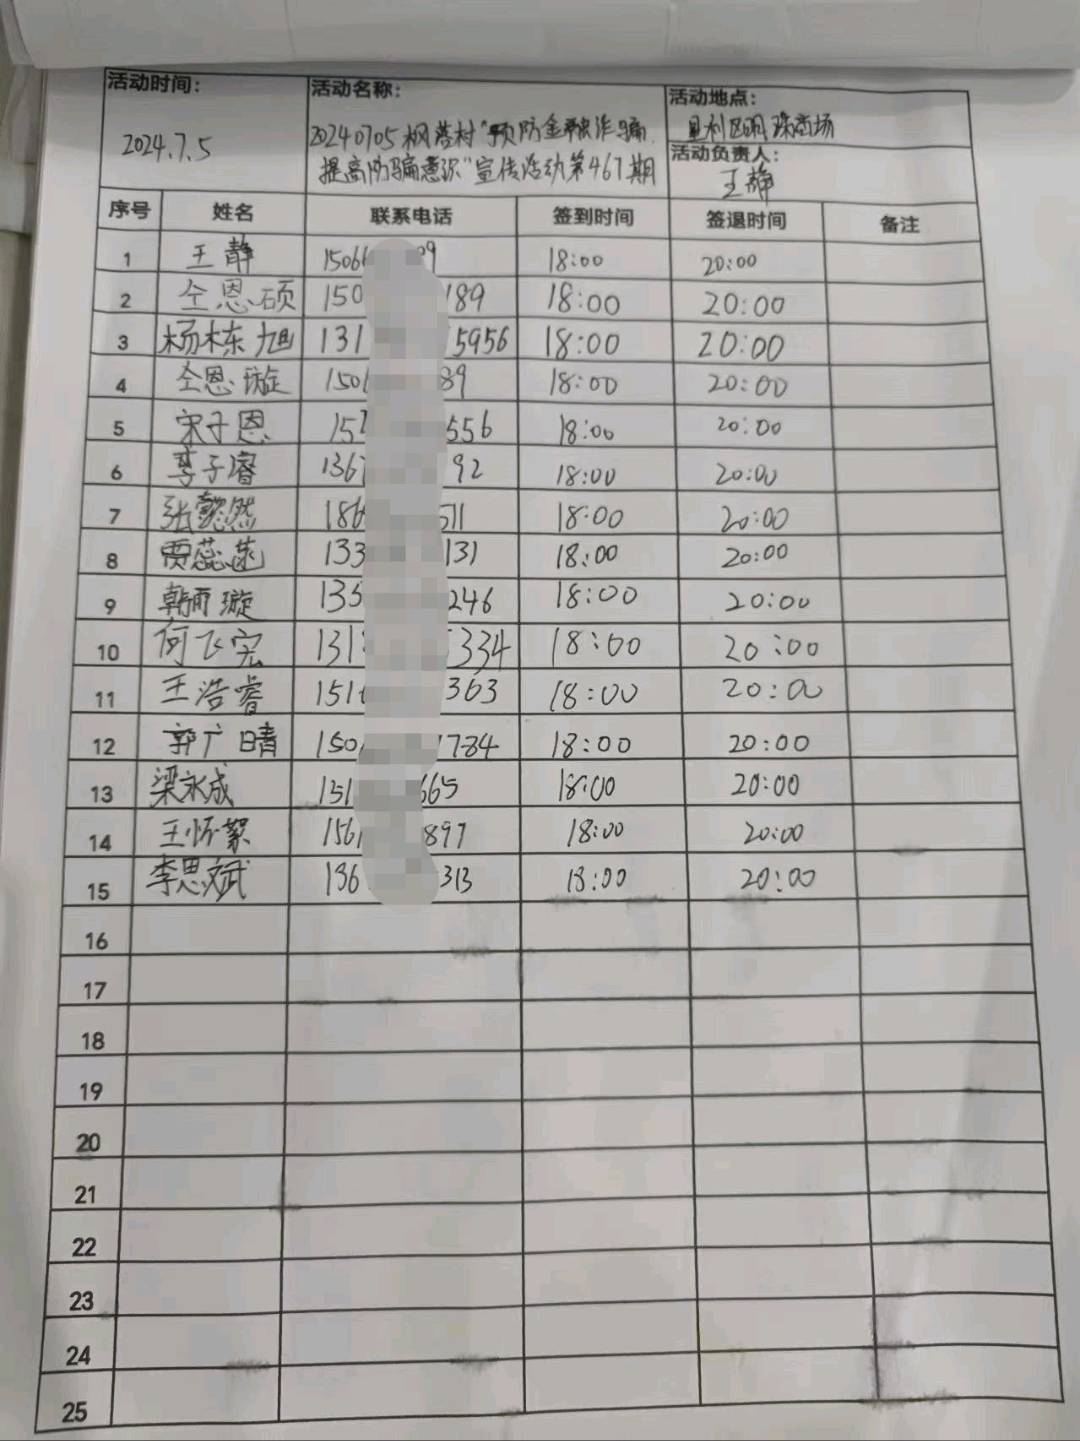 活动时间：
2024.7.5
活动名称：
20240705枫落村“预防金融诈骗，
提高防骗意识”宣传活动第467期
活动地点：
垦利区明珠商场
活动负责人：
王静
序号 姓名 联系电话 签到时间 签退时间 备注
1 王静 1506 09 18:00 20:00
2 仝恩硕 150 189 18:00 20:00
3 杨栋旭 131 5956 18:00 20:00
4 仝恩璇 150 89 18:00 20:00
5 宋子恩 15 556 18:00 20:00
6 李子睿 136 92 18:00 20:00
7 张懿然 186 511 18:00 20:00
8 贾蕊 133 131 18:00 20:00
9 韩雨璇 135 246 18:00 20:00
10 何飞宏 131 334 18:00 20:00
11 王浩睿 151 363 18:00 20:00
12 郭广晴 150 1784 18:00 20:00
13 梁永成 151 665 18:00 20:00
14 王怀絮 156 897 18:00 20:00
15 李思斌 136 313 18:00 20:00
16
17
18
19
20
21
22
23
24
25